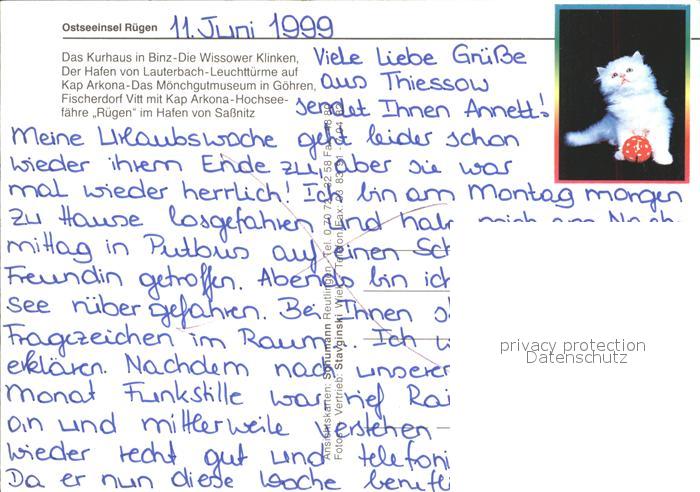 Ostseeinsel Rügen 11. Juni 1999
Das Kurhaus in Binz-Die Wissower Klinken,
Der Hafen von Lauterbach-Leuchttürme auf
Kap Arkona-Das Mönchgutmuseum in Göhren,
Fischerdorf Vitt mit Kap Arkona-Hochsee-
fähre „Rügen" im Hafen von Saßnitz
Viele Liebe Grüße
aus Thiessow
sendet Ihnen Annett!
Meine Urlaubswoche geht leider schon
wieder ihrem Ende zu, aber sie war
mal wieder herrlich! Ich bin am Montag morgen
zu Hause losgefahren und habe mich am Nach-
mittag in Putbus auf einen
Freundin getroffen. Abends bin ich
see rüber gefahren. Bei Ihnen
Fragezeichen im Raum. Ich
erklären. Nachdem nach unserer
Monat Funkstille war, rief
an und mittlerweile verstehen
wieder recht gut und
Da er nun diese Woche
Ansichtskarten: Schumann Reutlingen
Vertrieb: Stavginski
privacy protection
Datenschutz